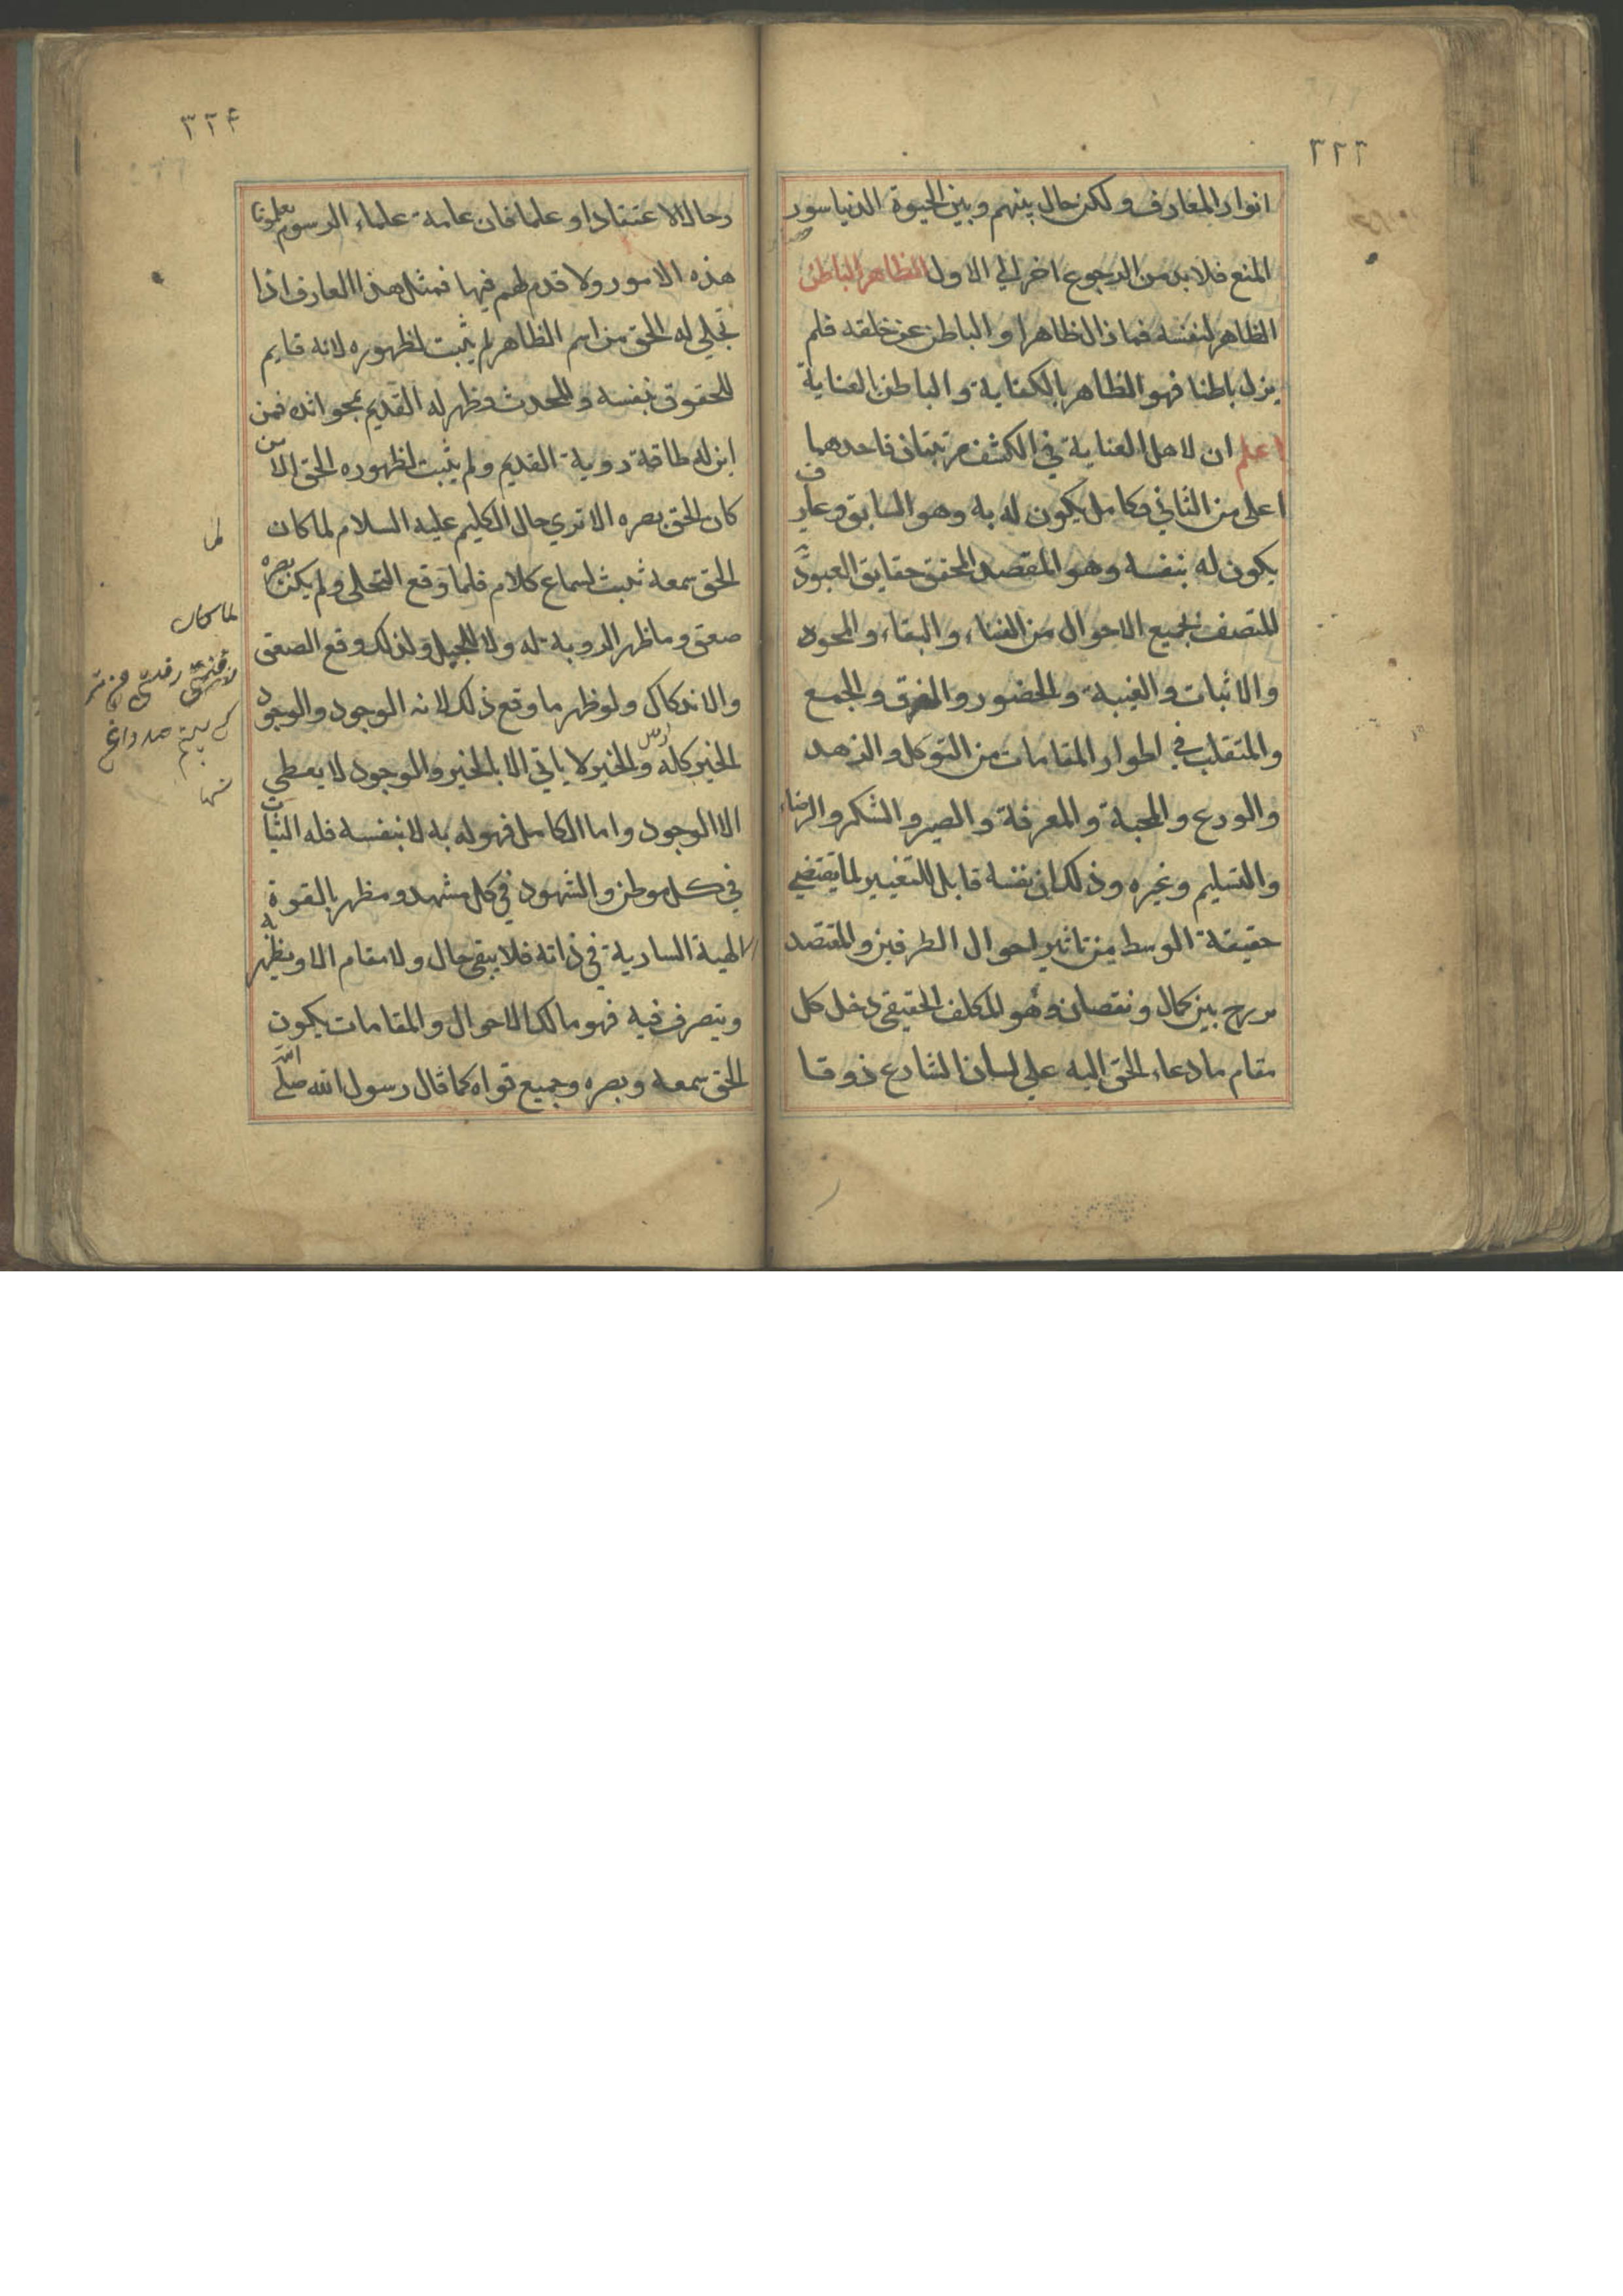 ٣٢٣
انوار المعارف ولكن حال بينهم وبين الحيوة الدنيا سور
المنع فلا بد من الرجوع اخر الى الاول الظاهر الباطن
الظاهر لنفسه فما زال ظاهرا والباطن عن خلقه فلم
يزل باطنا فهو الظاهر بالكفاية والباطن العناية
اعلم ان لاهل العناية في الكشف مرتبتان فاحدهما
اعلى من الثاني فكامل يكون له به وهو السابق وعارف
يكون له بنفسه وهو المقصد المحقق حقايق العبودية
المتصف بجميع الاحوال من الفناء والبقاء والمحو
والاثبات والغيبة والحضور والفرق والجمع
والمتقلب في اطوار المقامات من التوكل والزهد
والورع والمحبة والمعرفة والصبر والشكر والرضاء
والتسليم وغيره وذلك ان نفسه قابل للتغيير لما يقتضي
حقيقة الوسط من تاثير احوال الطرفين والمقتصد
برزخ بين كمال ونقصان وهو المكلف الحقيقي دخل كل
مقام ما دعاء الحق اليه على لسان الشارع ذوقا
٣٢۴
وحالا لا اعتقادا وعلما فان عامة علماء الرسوم يعلمونا
هذه الامور ولا قدم لهم فيها فمثل هذا العارف اذا
تجلى له الحق من اسم الظاهر لم يثبت لظهوره لانه قايم
للحقوق بنفسه والمحدث وظهر له القديم فمن
اين له طاقة روية القديم ولم يثبت لظهوره الحق الا من
كان الحق بصره الا ترى حال الكليم عليه السلام لما كان
الحق سمعه ثبت لسماع كلام فلما وقع التجلى ولم يكن بصره
صعق وما ظهر الروية له ولا للجبل ولذلك وقع الصعق
والاندكاك ولو ظهر ما وقع ذلك لانه الوجود والوجود
الخير كله والخير لا ياتي الا بالخير والوجود لا يعطي
الا الوجود واما الكامل فهو له به لا بنفسه فله الثبات
في كل موطن والشهود في كل مشهد ومظهر بالقوة
الالهية السارية في ذاته فلا يبقى حال ولا مقام الا ويظهر
ويتصرف فيه فهو مالك الاحوال والمقامات يكون
الحق سمعه وبصره وجميع قواه كما قال رسول الله صلى الله
لما كان